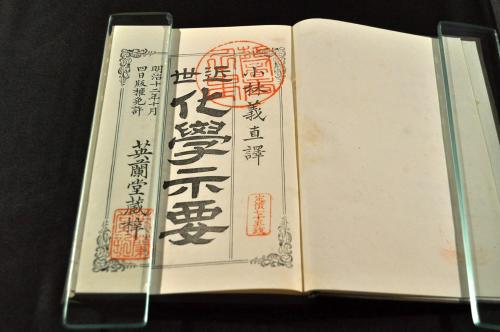 小林義直譯
近世
化學示要
明治十二年十月
四日版權免許
英蘭堂蔵梓